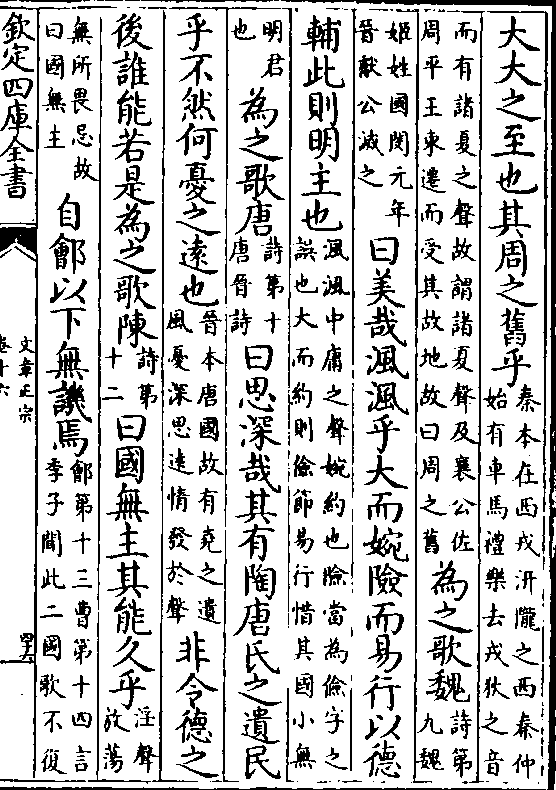 大大之至也其周之舊乎秦本在西戎汧隴之西秦仲始有車馬禮樂去戎狄之音
而有諸夏之聲故謂諸夏聲及襄公佐周平王東遷而受其故地故曰周之舊為之歌魏詩第九魏
姬姓國閔元年晉獻公滅之曰美哉渢渢乎大而婉險而易行以德
輔此則明主也渢渢中庸之聲婉約也險當為儉字之誤也大而約則儉節易行惜其國小無
明君也為之歌唐詩第十唐晉詩曰思深哉其有陶唐氏之遺民
乎不然何憂之遠也晉本唐國故有堯之遺風憂深思遠情發於聲非令德之
後誰能若是為之歌陳詩第十二曰國無主其能久乎淫聲放蕩
無所畏忌故曰國無主自鄶以下無譏焉鄶第十三曹第十四言季子聞此二國歌不復
欽定四庫全書
文章正宗
卷十六